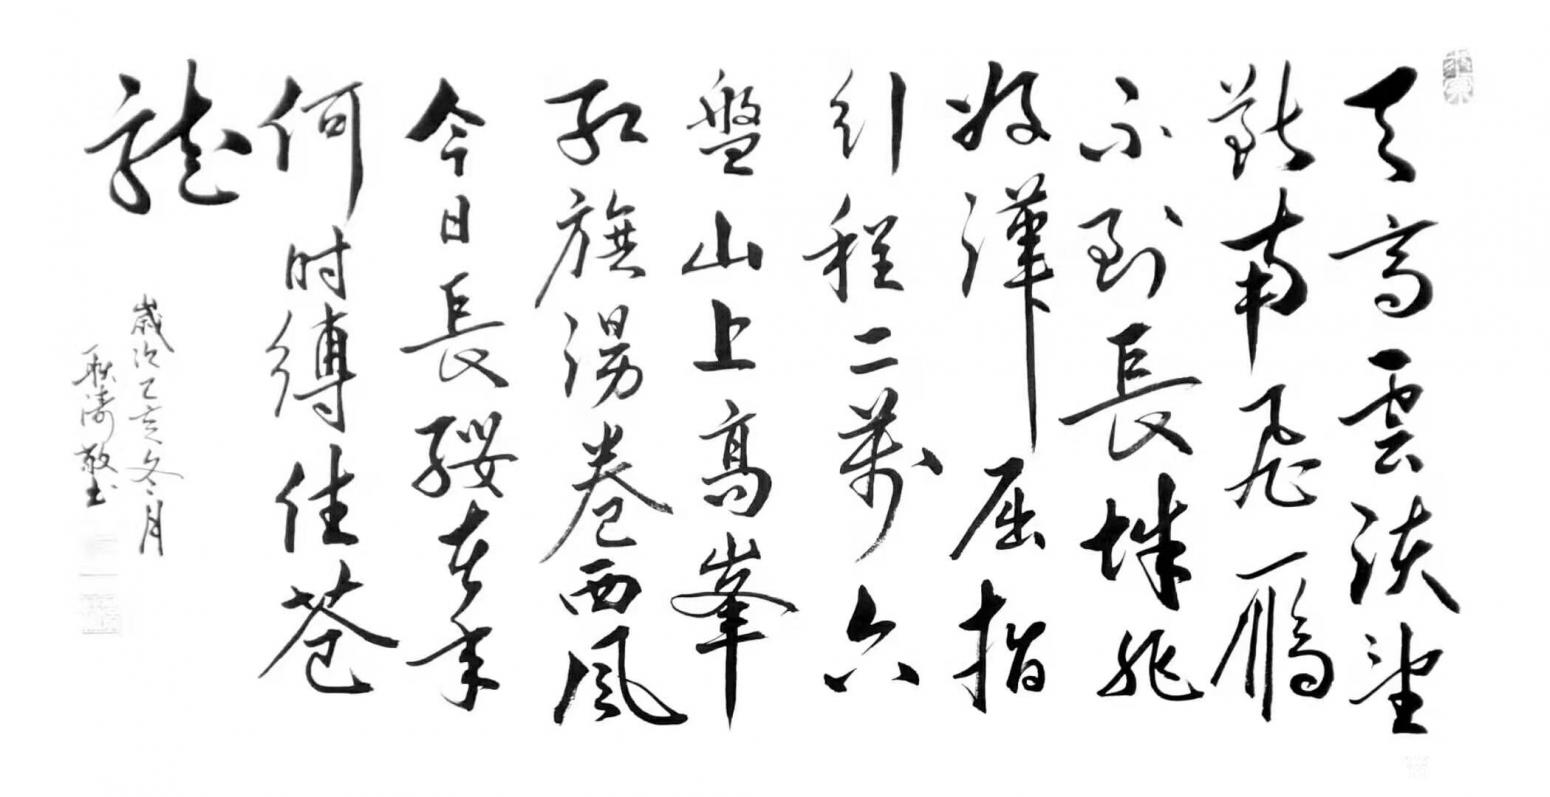 天高雲淡望
斷南飛鴈
不到長城非
好漢屈指
行程二萬六
盤山上高峯
紅旗漫卷西風
今日長纓在手
何时縛住蒼
龍
歲次乙亥冬月
耿濤敬书